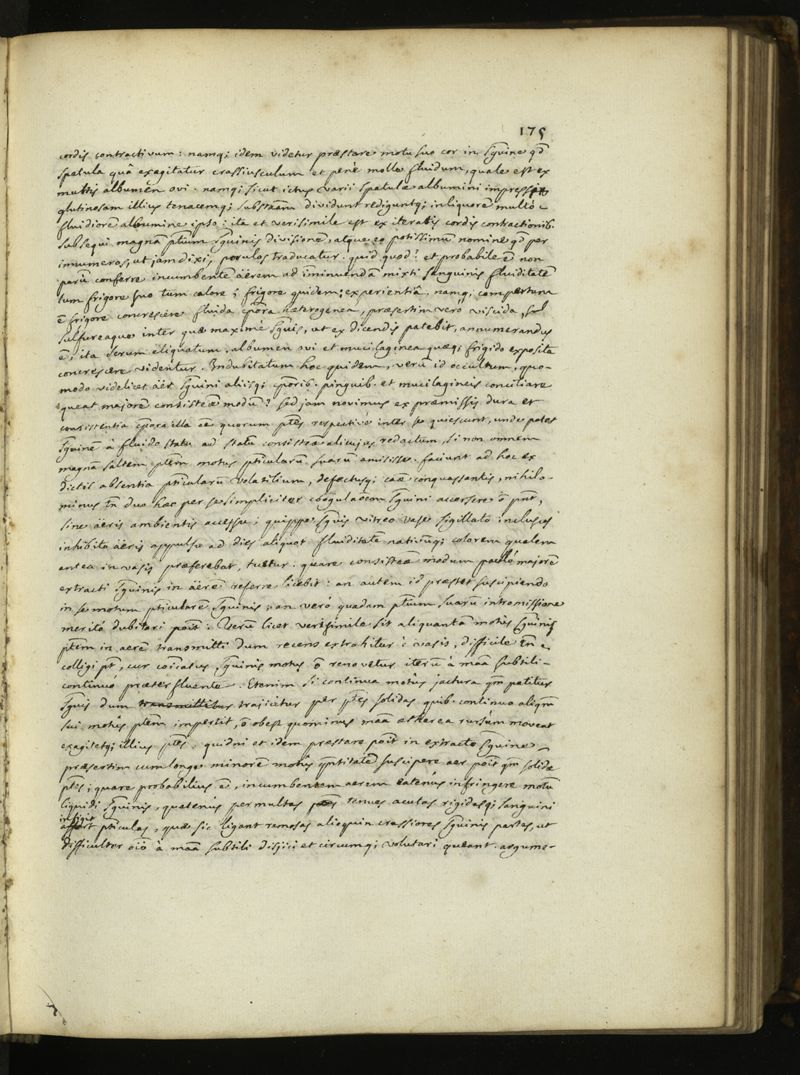 175
cordis contractivum: namq; idem videtur præstare motu suo cor in sguine qd
spatula quâ exagitatur crassiusculum et penè molle fluidum, quale est ex
multis albumēn ovi. namq; sicut ictus varii spatulæ albumini impressæ
glutinosam illius tenacemq; substām dividunt rediguntq; in liquorē multò
fluidiorē albumine ipso: ita et verisimile est ex iteratis cordis contractionib.
subsequi magnā ptium sguinis divisionē, atque eo potissimū nomine qd per
innumeros, ut jam dixi, porulos traducatur. quid quod? et probabile ē non
parū conferre incumbentē aërem ad iminuendā mixti sanguinis fluiditatē
tum frigore suo tum calore; frigore quidem; experientiâ namq; compertum
ē frigore concrescere fluida cpora hæterogenea, præsertim verò viscida, sul
sulfureaque inter quæ maximè sguis, ut ex dicendis patebit, annumerandus
ē, ita serum eliquatum, albumen ovi et mucilaginea quæq; frigido exposita
concrescere videntur. Indubitatum hoc quidem, verū id occultum, quo-
modo videlicet aër sguini aliisq; cporib. pinguib. et mucilagineis conciliare
queat majorē consisteæ modū? sed jam novimus ex præmissis dura et
consistentia cpora illa eē quorum ptes respectivè inter se quiescunt, unde patet
sguinē a fluido statu ad statū consisteæ alicujus redactum, si non omnem
magnā saltem ptem motus pticularū suarū amisisse. faciunt ad hoc ex
dictis absentia pticularū volatilium, defectusq; caæ conquassantis, nihilo-
minus tn duo hæc per se simpliciter coagulaōem sguini accersere ō pnt,
sine aëris ambientis accessu; quippe sguis vitreo vase sigillato inclusus
inhibito aëris appulsu ad dies aliquot fluiditatē nativāq; colorem qualem
antea in vasis præferebat, tuetur. quare consisteæ modum paulò majorē
extracti sguinis in aërē referre licebit: an autem id præstet suscipiendo
in se motum pticularē sguinis, an verò quadam ptium suarū intromissione
meritò dubitari poit. Verū licet verisimile sit aliquantā motus sguinis
ptem in aerē transmitti dum recens extrahitur è vasis, difficile tn ē
colligi pt, cur coiicatus, sguinis motus ō renovetur iterū à maā subtili-
continuò præterfluente. Etenim si continua motus jactura qm patitur
sguis dum transmittitur trajicitur per ptes solidas quib. continuo aliqm
sui motus ptem impertit, ō obest quominus maā ætherea rursum moveat
exagitetq; illius ptes, quidni et idem præstare poit in extracto sguine
præsertim cum longe minorē motus qntitatē suscipere aer poit qm solidæ
ptes; quare probabilius ē, incumbentem aerem eatenus infringere motū
liquidi sguinis, quatenus permultas ptes tenues acutas rigidasq; sanguini
infigit
affert pticulas, quæ sic ligant ramosas alioquin crassiores sguinis partes, ut
difficulter oīō à maā subtili disjici et circumq; volutari queant. argume-